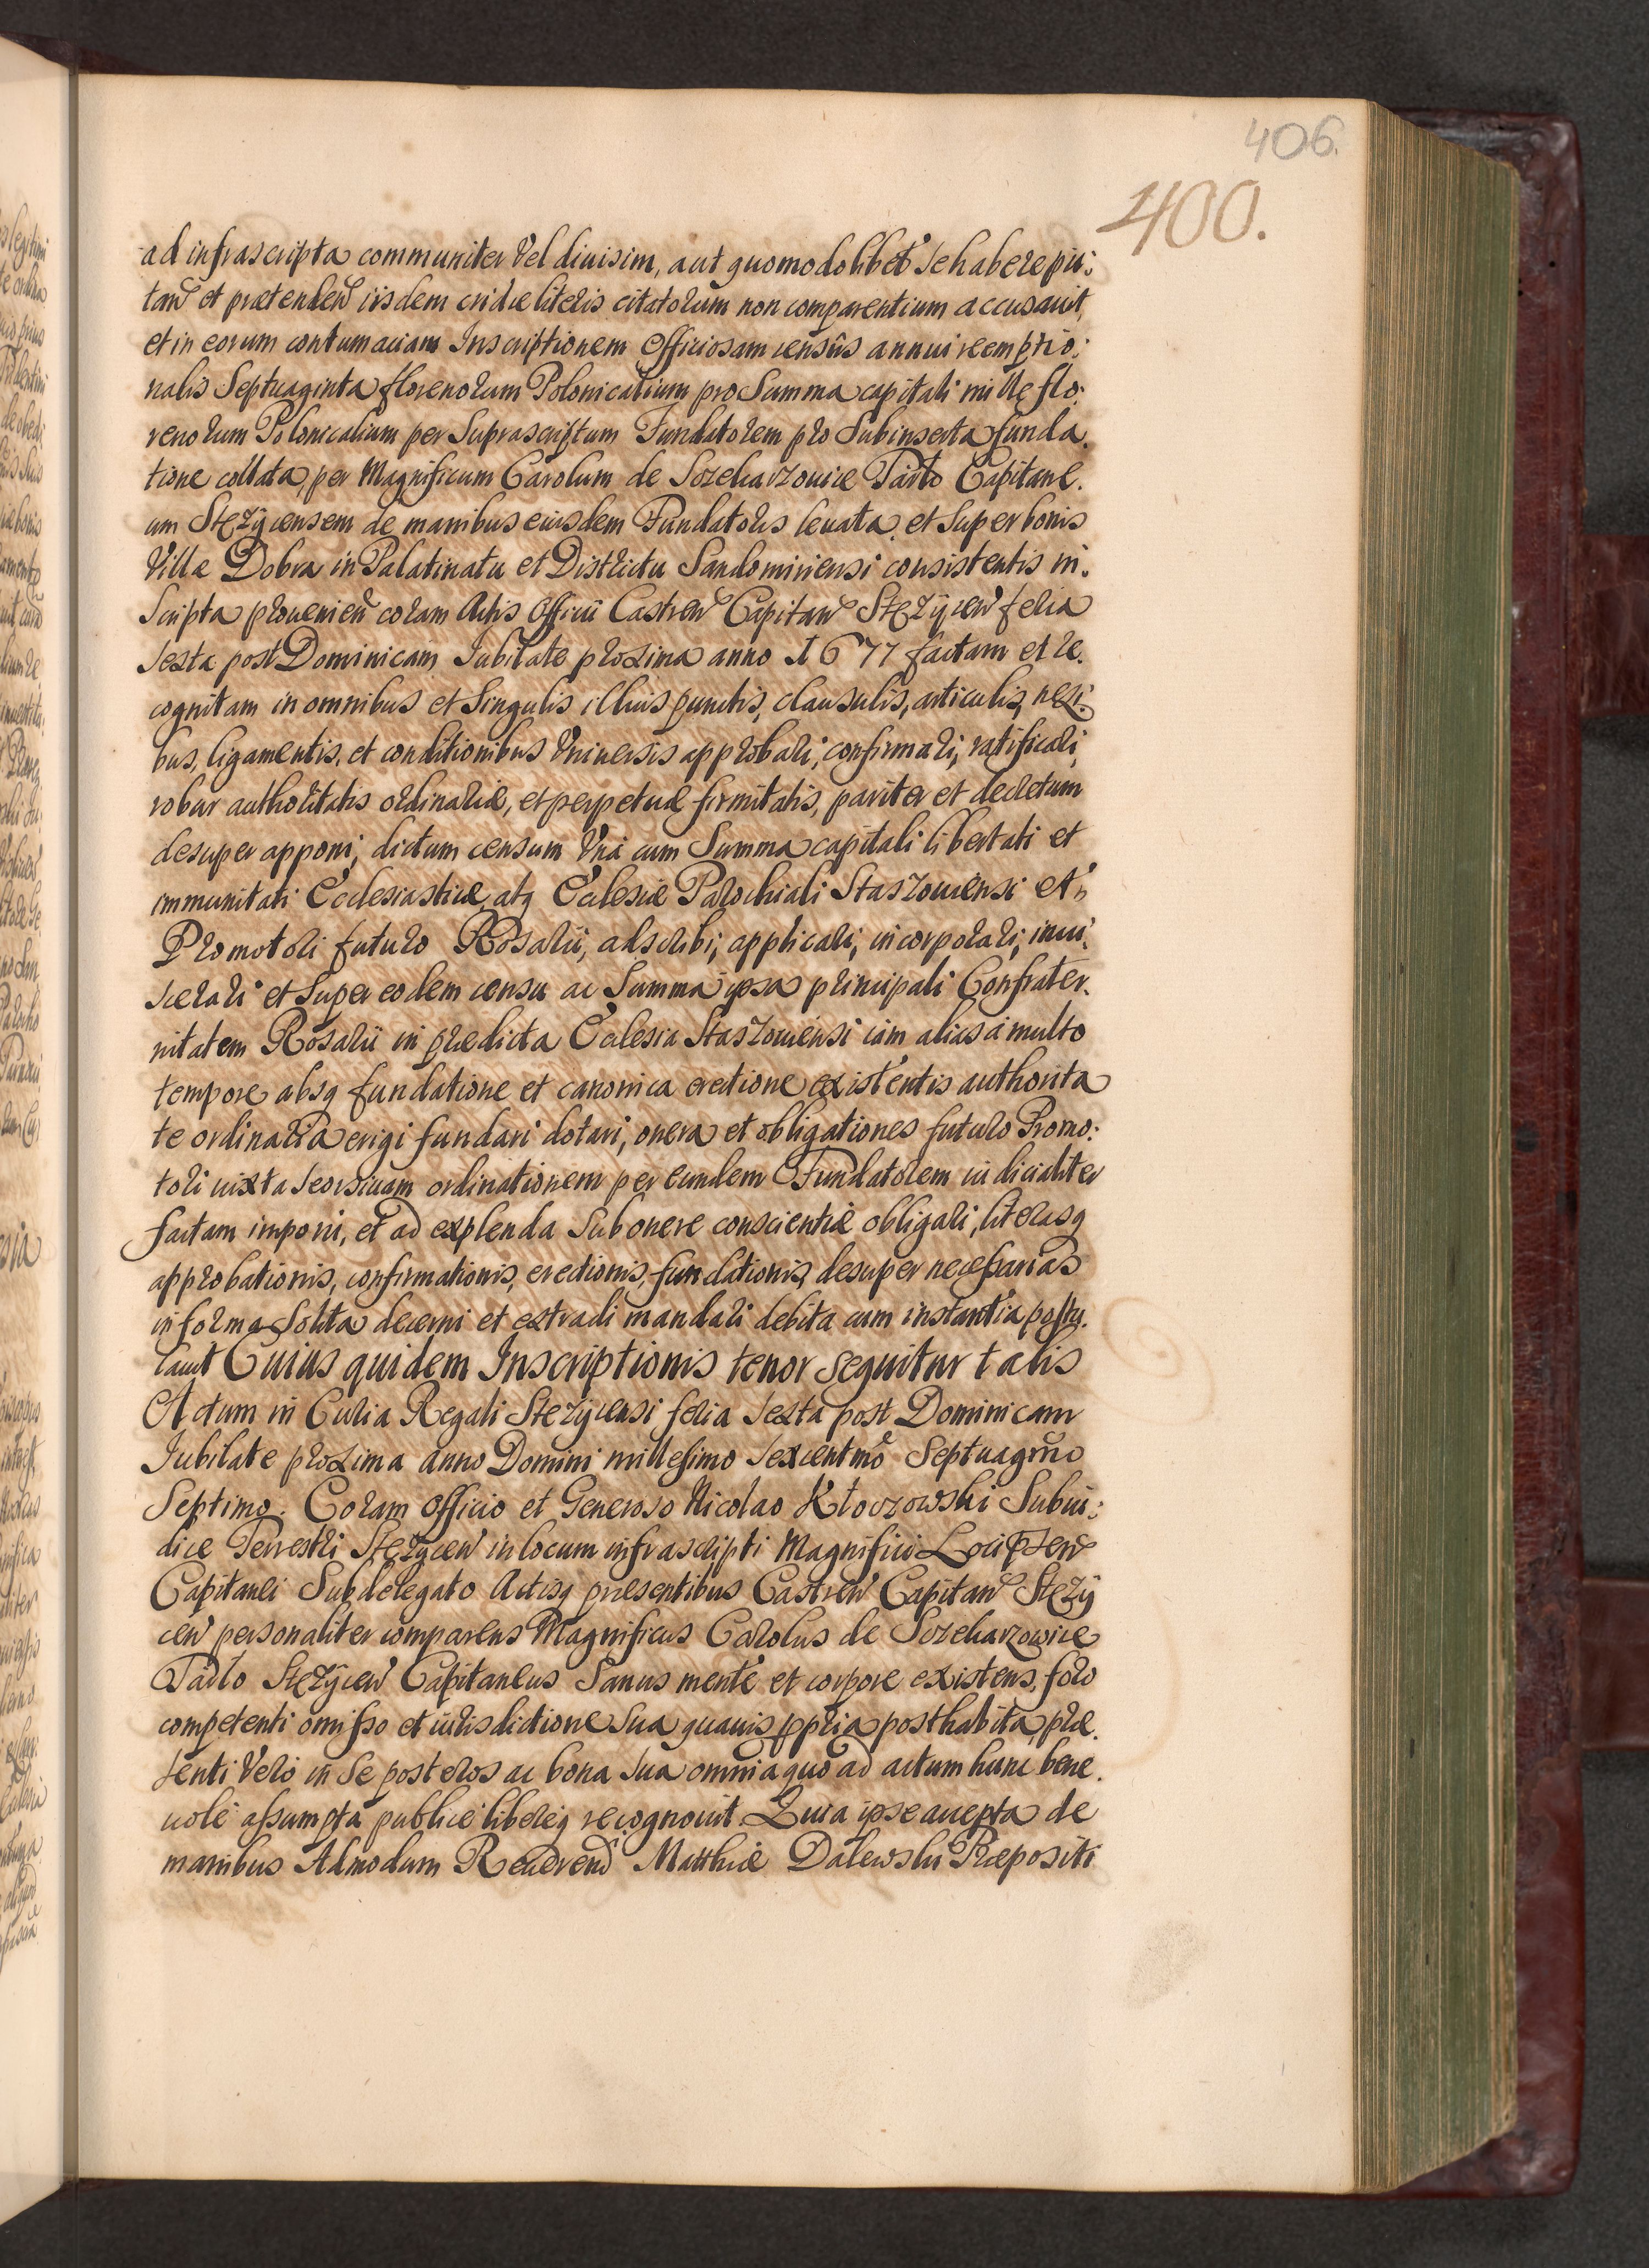 406.
400.
ad infrascripta communiter Vel diuisim, aut quomodolibet se habere pu:
tan̄ et prætenden̄ iisdem cridæ literis citatorum non comparentium accusauit,
et in eorum contumaciam Inscriptionem Officiosam censûs annui reemptio:
nalis Septuaginta florenorum Polonicalium pro Summa capitali mille flo:
renorum Polonicalium per Suprascriptum Fundatorem pro Subinserta funda.
tione collata, per Magnificum Carolum de Sczekarzouice Tarło Capitane.
um Stęzÿcensem de manibus eiusdem Fundatoris leuata, et Super bonis
Villæ Dobra in Palatinatu et Districtu Sandomiriensi consistentis in.
scripta prouenien̄ coram Actis Officii Castren̄ Capitan̄ Stęzÿcen̄ feria
sexta post Dominicam Iubilate proxima anno 1677 factam et re.
cognitam in omnibus et Singulis illius punctis, clausulis, articulis, nexi:
bus, ligamentis, et conditionibus Vniuersis approbari, confirmari, ratificari,
robur authoritatis ordinariæ, et perpetuæ firmitatis, pariter et decretum
desuper apponi, dictum censum Vnà cum Summa capitali libertati et
immunitati Ecclesiasticæ, atq Ecclesiæ Parochiali Staszouiensi et
Promotori futuro Rosarii, adscribi, applicari, incorporari, inui.
scerari et Super eodem censu ac Summa ipsa principali Confrater.
nitatem Rosarii in prædicta Ecclesia Staszouiensi iàm aliàs à multo
tempore absq fundatione et canonica erectione existentis authorita
te ordinaria erigi fundari dotari, onera et obligationes futuro Promo:
tori iuxta seorsiuam ordinationem per eundem Fundatorem iudicialiter
factam imponi, et ad explenda Sub onere conscientiæ obligari, literasq
approbationis, confirmationis, erectionis, fundationis desuper necessarias
in forma Solita decerni et extradi mandari debita cum instantia postu.
lauit Cuius quidem Inscriptionis tenor sequitur talis
Actum in Curia Regali Stęzÿcensi feria sexta post Dominicam
Iubilate proxima anno Domini millesimo sexcentmō Septuagmō
Septimo. Coram Officio et Generoso Nicolao Kłoczowski Subiu:
dice Terrestri Stęzÿcen̄ in locum infrascripti Magnifici Locipsen̄
Capitanei Subdelegato Actisq præsentibus Castren̄ Capitan̄ Stęzÿ
cen̄ personaliter comparens Magnificus Carolus de Sczekarzowice
Tarło Stęzÿcen̄ Capitaneus Sanus mente et corpore existens, foro
competenti omisso et iurisdictione Sua quauis ppria posthabita, præ.
senti Verò in Se posteros ac bona Sua omnia quo ad actum hunc bene.
uolè assumpta publicè libereq recognouit Quia ipse accepta de
manibus Admodum Reuerend Matthiæ Dalewski Præpositi